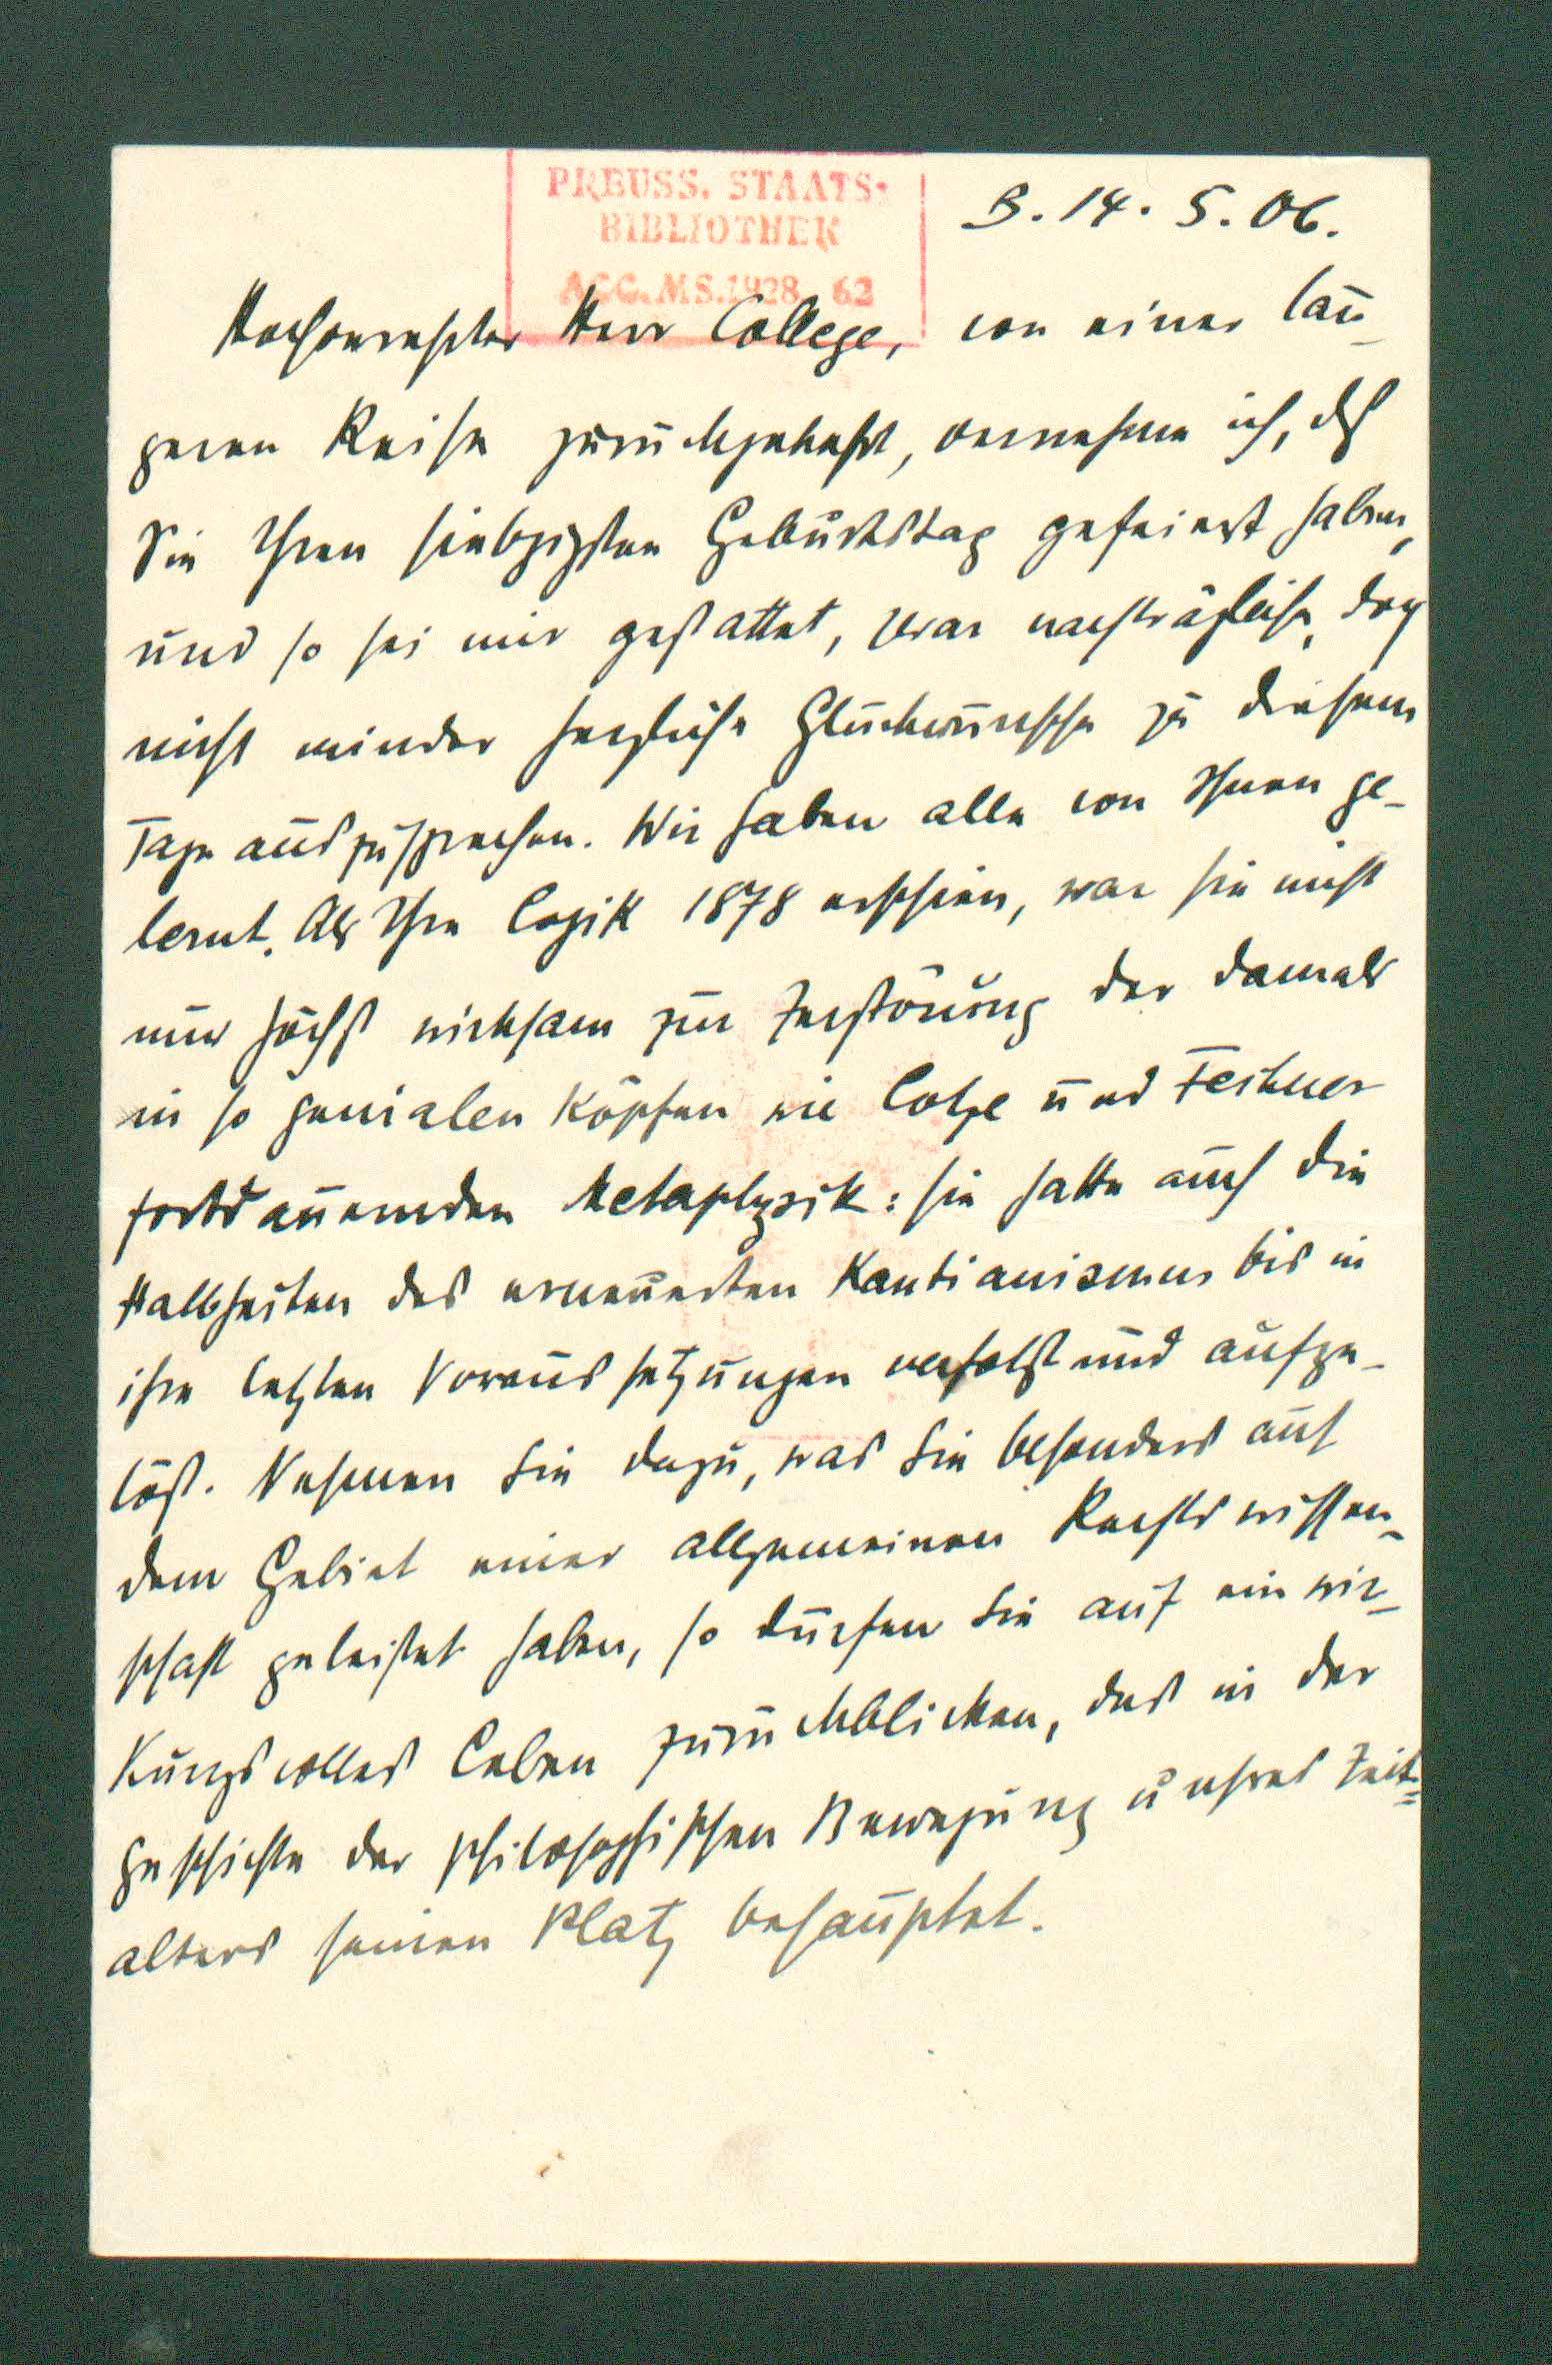 PREUSS. STAATS-
BIBLIOTHEK
ACC. MS. 1928. 62
B. 14. 5. 06.
Hochverehrter Herr College, von einer län-
geren Reise zurückgekehrt, vernehme ich, daß
Sie Ihren siebzigsten Geburtstag gefeiert haben,
und so sei mir gestattet, zwar nachträgliche, doch
nicht minder herzliche Glückwünsche zu diesem
Tage auszusprechen. Wir haben alle von Ihnen ge-
lernt. Als Ihre Logik 1878 erschien, war sie nicht
nur höchst wirksam zur Zerstörung der damals
in so genialen Köpfen wie Lotze und Fechner
fortdauernden Metaphysik: sie hatte auch die
Halbheiten des erneuerten Kantianismus bis in
ihre letzten Voraussetzungen verfolgt und aufge-
löst. Nehmen Sie dazu, was Sie besonders auf
dem Gebiet einer allgemeinen Rechtswissen-
schaft geleistet haben, so dürfen Sie auf ein wir-
kungsvolles Leben zurückblicken, das in der
Geschichte der philosophischen Bewegung unsres Zeit-
alters seinen Platz behauptet.